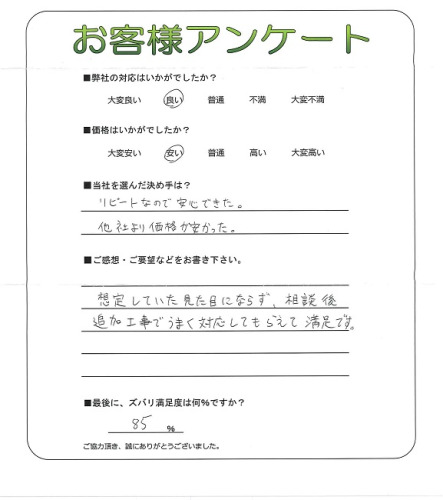 お客様アンケート
■弊社の対応はいかがでしたか？
大変良い 良い 普通 不満 大変不満
■価格はいかがでしたか？
大変安い 安い 普通 高い 大変高い
■当社を選んだ決め手は？
リピートなので安心できた。
他社より価格が安かった。
■ご感想・ご要望などをお書き下さい。
想定していた見た目にならず、相談後
追加工事でうまく対応してもらえて満足です。
■最後に、ズバリ満足度は何%ですか？
85 %
ご協力頂き、誠にありがとうございました。